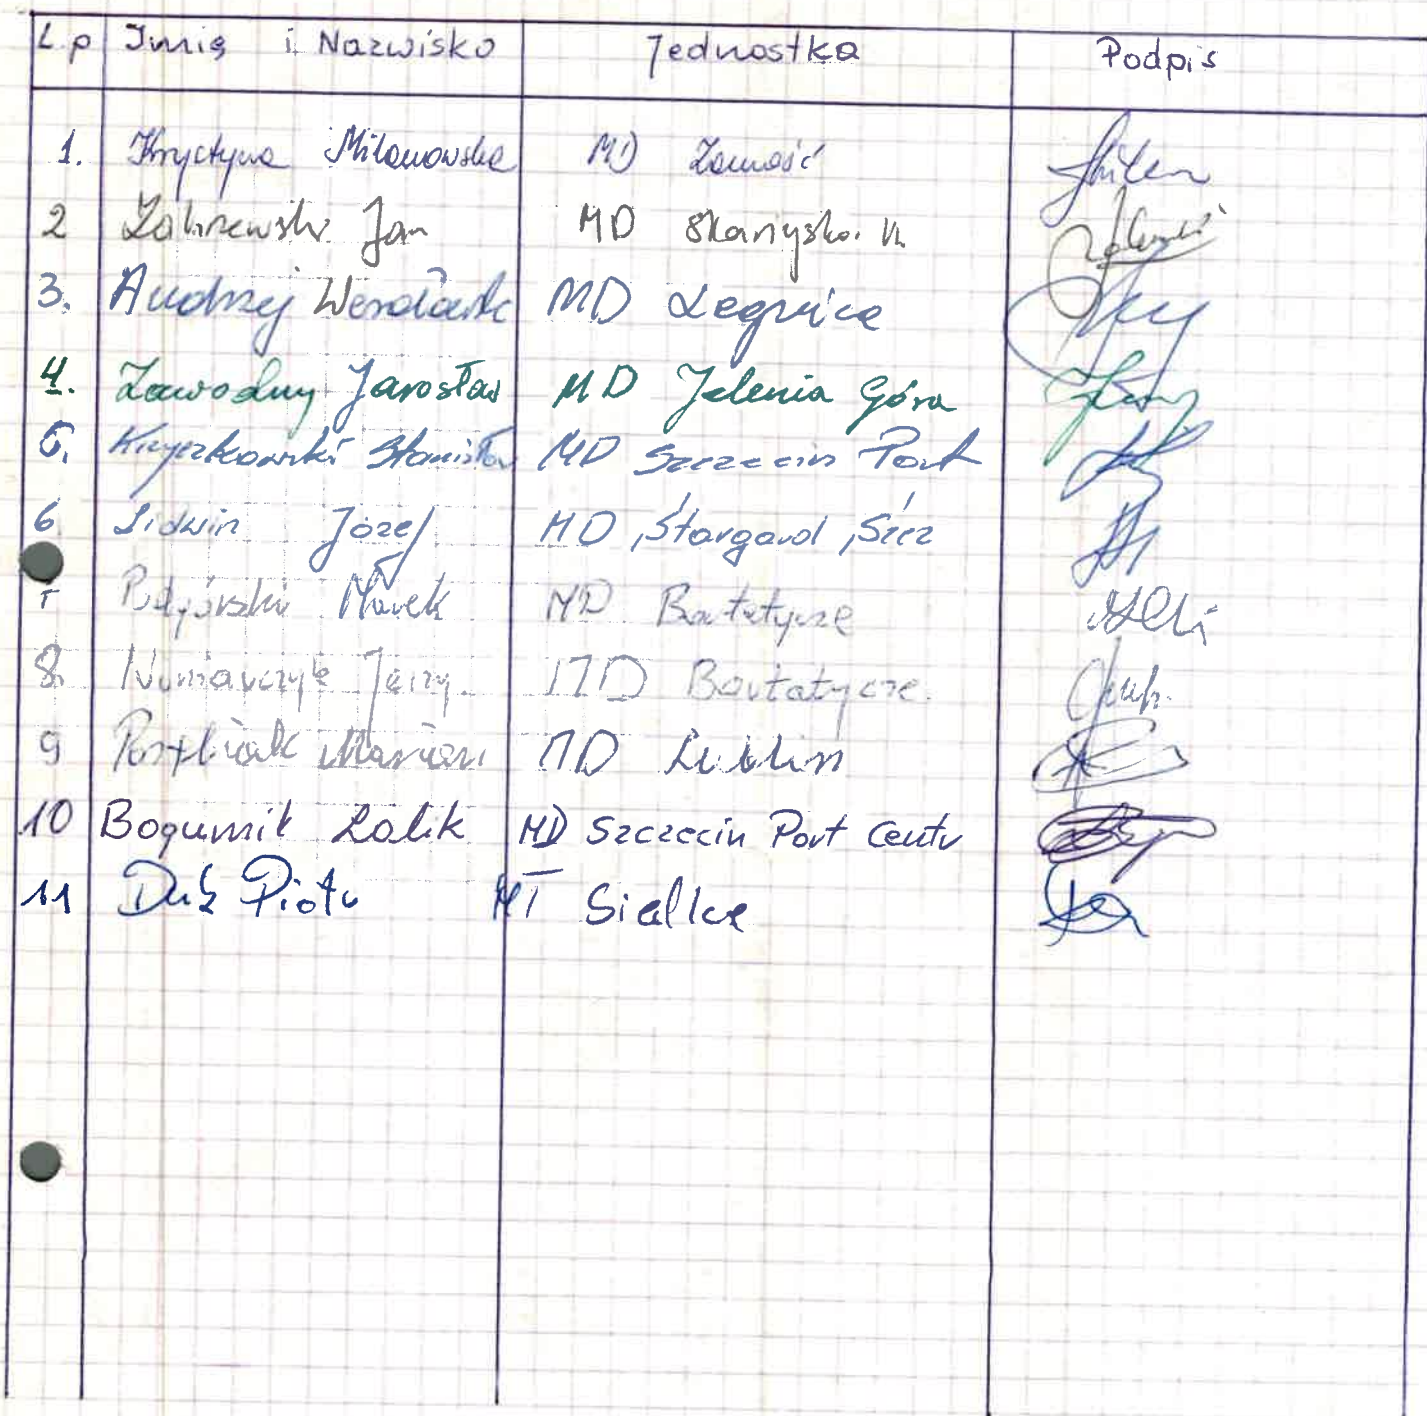 L.p Imię i Nazwisko Jednostka Podpis
1. Krystyna Milanowska MD Zamość
2 Zakrzewski Jan MD Skarżysko. K.
3. Andrzej MD Legnica
4. Zawodny Jarosław MD Jelenia Góra
5. Kryczkowski Stanisław MD Szczecin Port
6 Sidwin Józef MD Stargard Szcz
7 Podgórski Marek MD Bortatycze
8. Jerzy MD Bortatycze.
9 Marian MD Lublin
10 Bogumił Lolik MD Szczecin Port Centr
11 Duk Piotr MT Siedlce